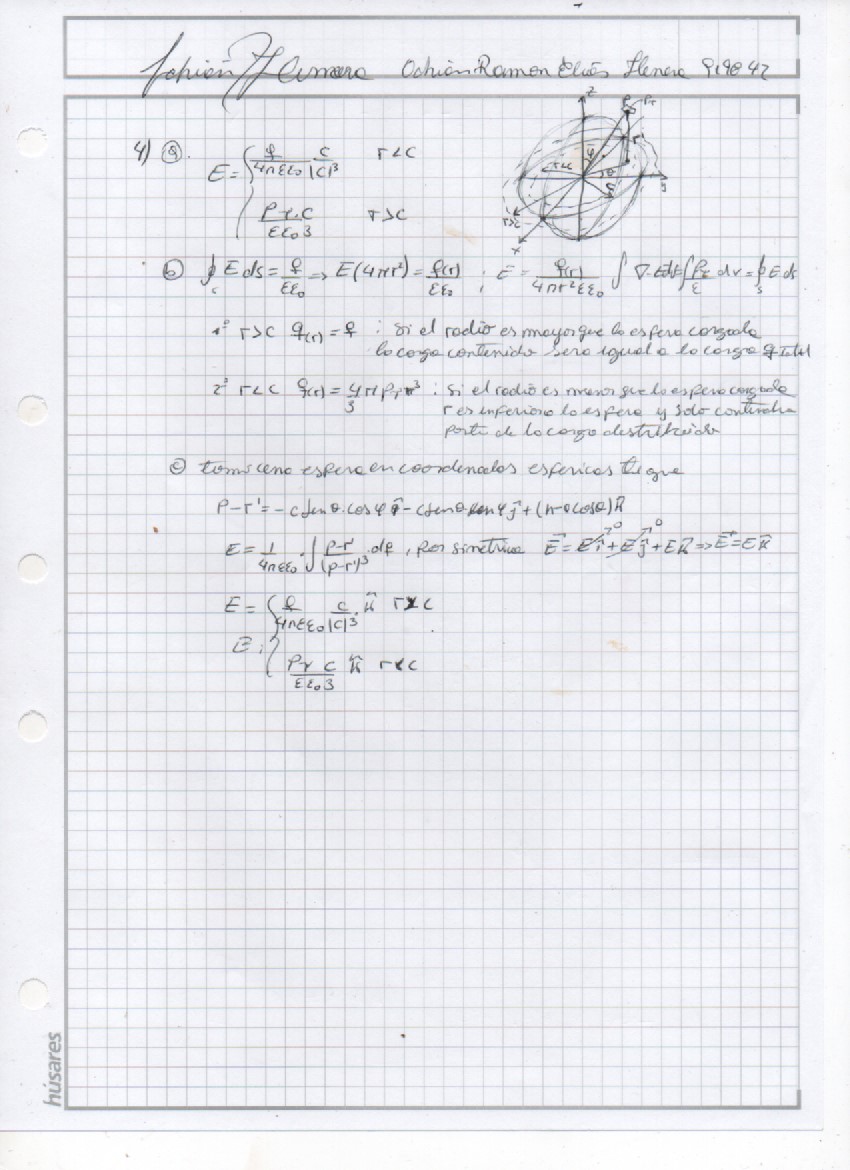 Adrián Ramón Elías 919842
4) a) E = { q/(4πεε₀) c/|c|³ r<c
ρ r c/(εε₀3) r>c
z
P
y
x
r>c
b) ∮ E ds = q/(εε₀) ⇒ E(4πr²) = q(r)/(εε₀) ; E = q(r)/(4πr²εε₀) ∫ ∇·E dv = ∫ ρ/ε dv = ∮ E ds
1º r>c q(r) = q : si el radio es mayor que la esfera cargada
la carga contenida sera igual a la carga q total
2º r<c q(r) = 4/3 π ρ r³ : si el radio es menor que la esfera cargada
r es inferior a la esfera y solo contendra
parte de la carga distribuida
c) tomo una esfera en coordenadas esfericas
P-r' = -c senθ·cosφ î - c senθ senφ ĵ + (n-c cosθ) k̂
E = 1/(4πεε₀) ∫ (P-r')/(P-r')³ dq , por simetria E⃗ = E î + E ĵ + E k̂ ⇒ E⃗ = E k̂
E = { q/(4πεε₀) c/|c|³ k̂ r c
E :
ρ r c/(εε₀3) k̂ r<c
húsares